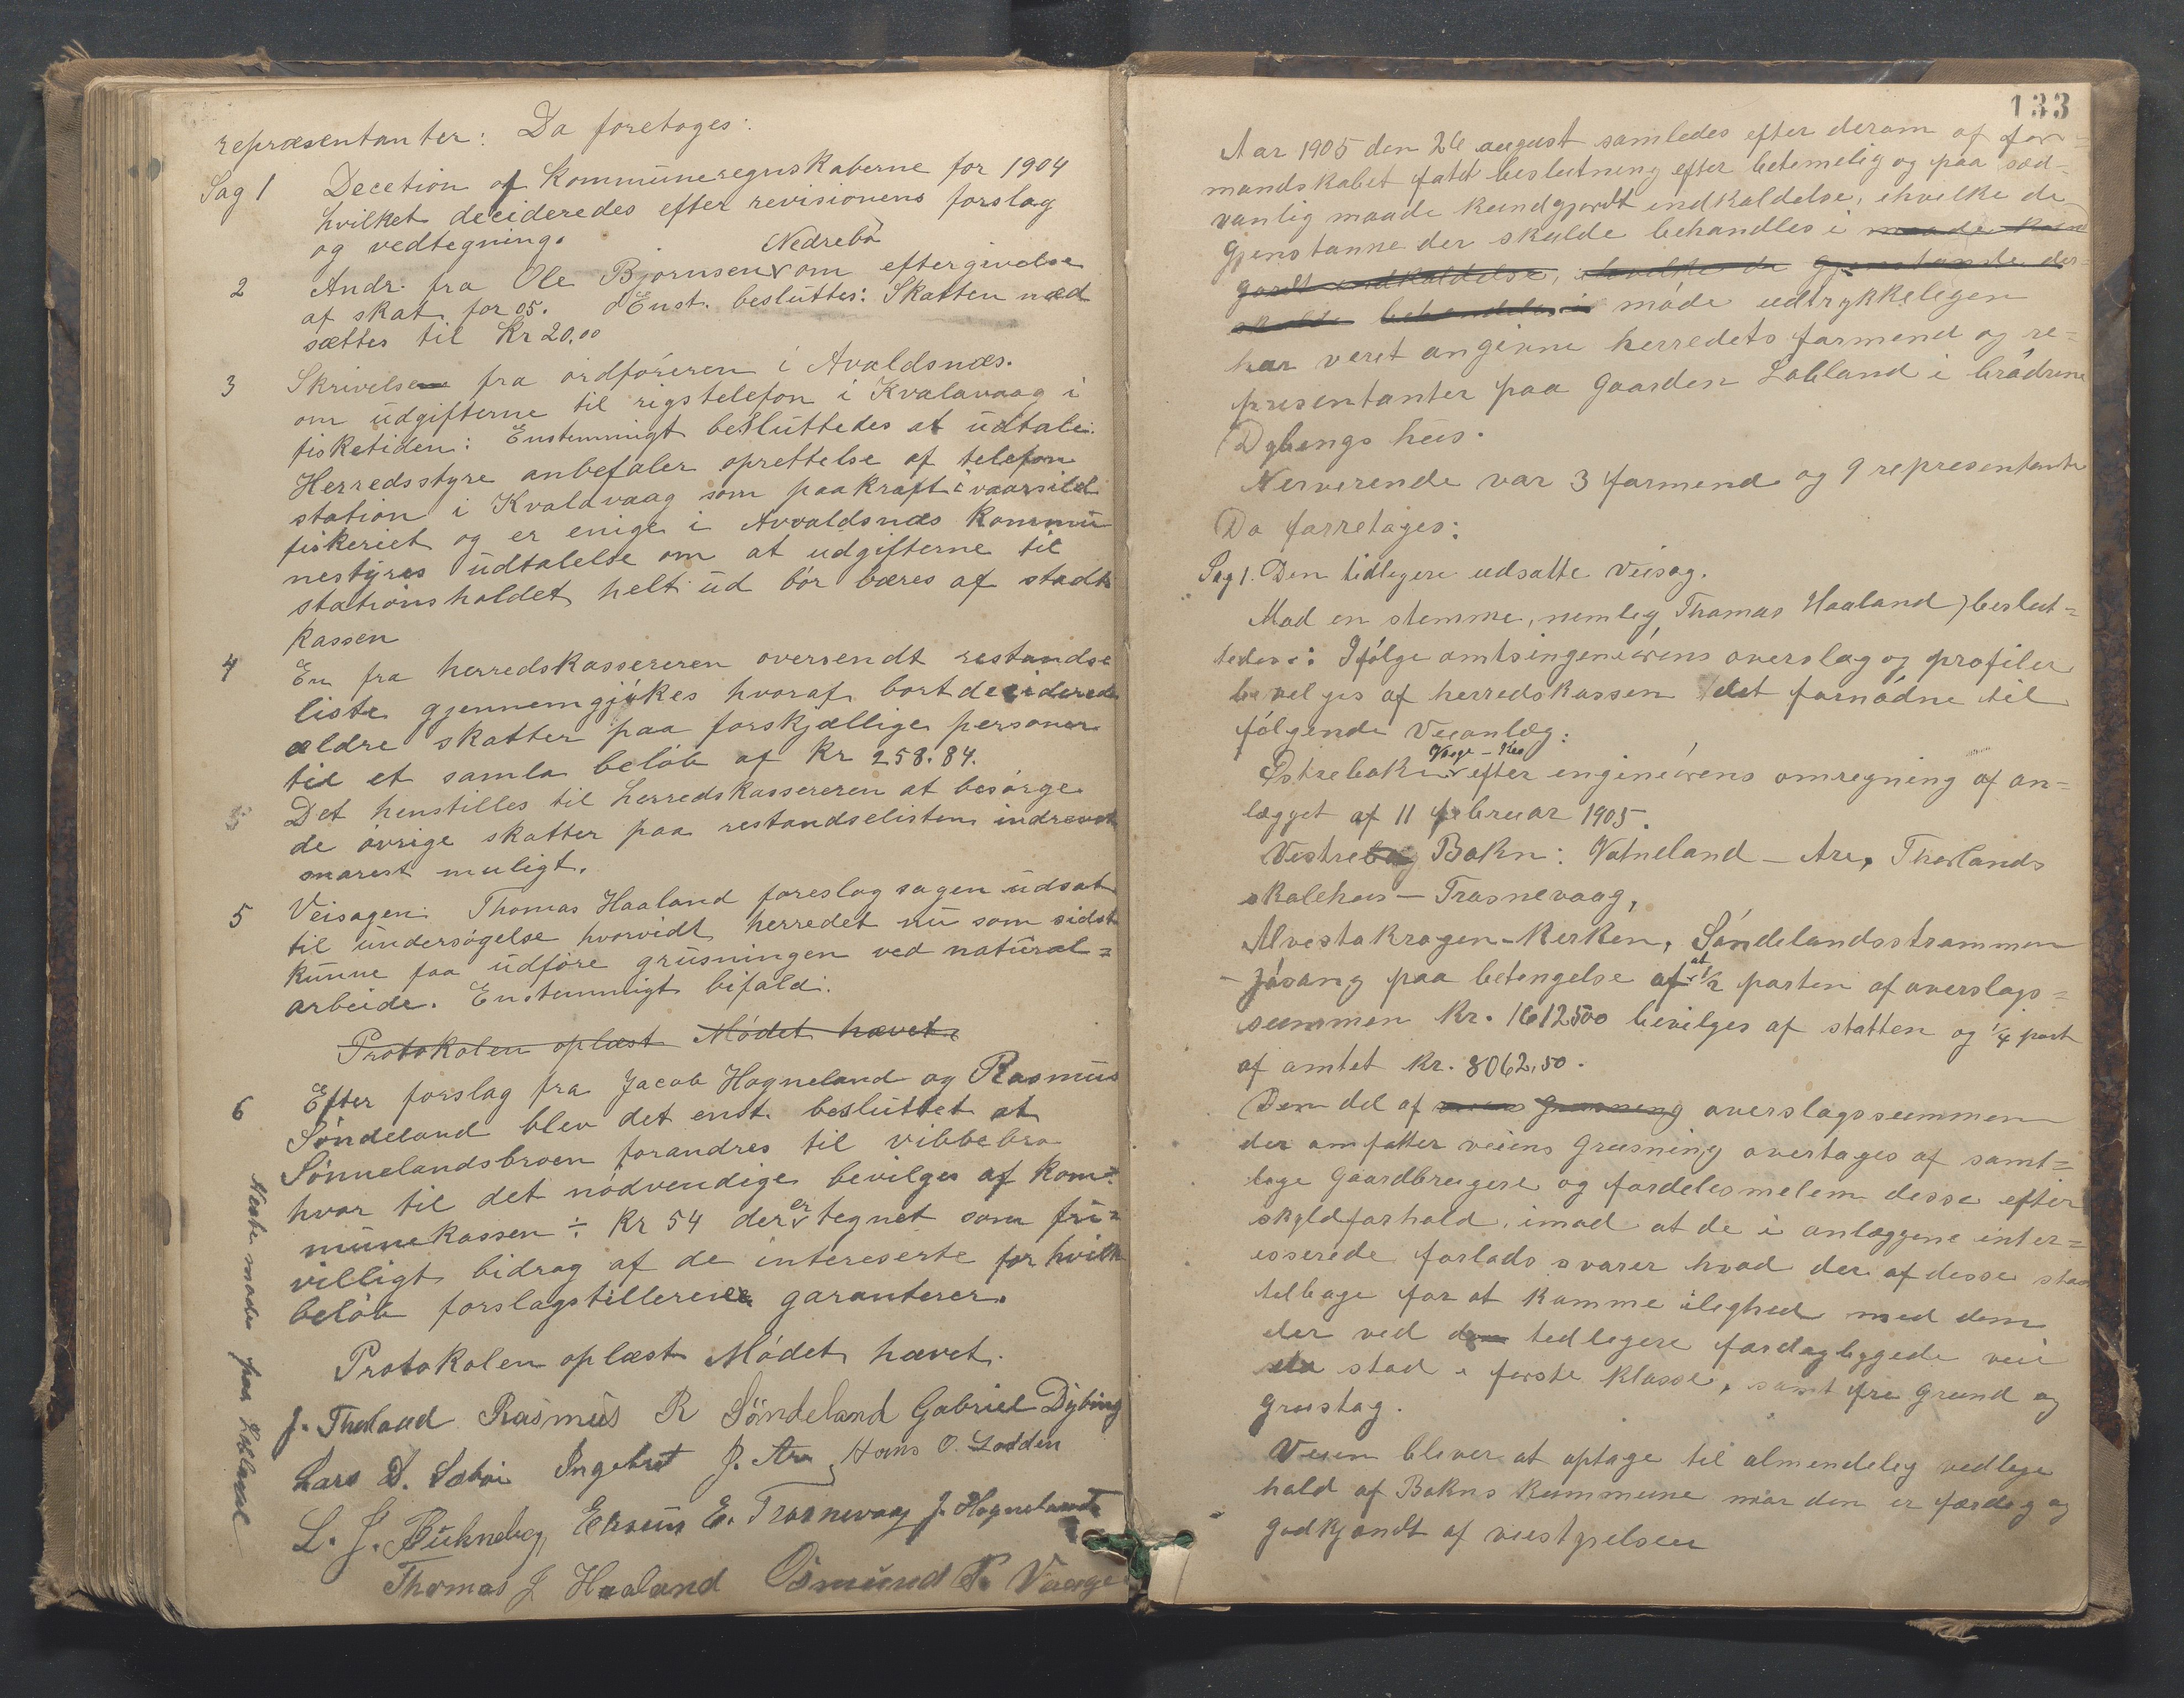 repræsentanter: Da foretoges:
Sag 1 Decetion af Kommuneregnskaberne for 1904
hvilket decideredes efter revisionens forslag
og vedtegning.
Nedrebö
2 Andr. fra Ole Bjornsen om eftergivelse
af skat for 05. Enst. besluttes: Skatten ned
sættes til Kr 20,00
3 Skrivelse fra ordföreren i Avaldsnæs.
om udgifterne til rigstelefon i Kvalavaag i
fisketiden: Enstemmigt besluttedes at udtale:
Herredsstyre anbefaler oprettelse af telefon
station i Kvalavaag som paakraft i vaarsild
fiskeriet og er enige i Avvaldsnæs Kommu
nestyres udtalelse om at udgifterne til
stationsholdet helt ud bör bæres af stadts
kassen
4 En fra herredskassereren oversendt restandse
liste gjennemgjikes hvoraf bortdeciderede
ældre skatter paa forskjællige personer
til et samla belöb af Kr 258.84.
Det henstilles til herredskassereren at besörge
de övrige skatter paa restandselisten indrevet
snarest muligt.
5 Veisagen: Thomas Haaland foreslog sagen udsat
til undersögelse hvorvidt herredet nu som sidst
kunne faa udföre grusningen ved natural=
arbeide. Enstemmigt bifald.
Protokolen oplæst Mödet hævet.
6 Efter forslag fra Jacob Hogneland og Rasmus
Söndeland blev det enst. besluttet at
Sönnelandsbroen forandres til vibbebro
hvor til det nödvendige bevilges af Kom=
munekassen ÷ Kr 54 der er tegnet som fri=
villigt bidrag af de intereserte for hvilk
belöb forslagstillerene garanterer.
Protokolen oplæst Mödet hævet.
J. Thorland Rasmus R Söndeland Gabriel Dybing
Lars D. Sæböi Ingebret J. Are Hans O. Lodden
L. J. Elseus E. Trosnevaag J. Hogneland
Thomas J Haaland Osmund P. Vaage
Næste möde paa Løbland
133
Aar 1905 den 26 august samledes efter derom af for=
mandskabet fatdt beslutning efter betemelig og paa sæd=
vanlig maade kundgjordt indkaldelse, ihvilke de
Gjenstanne der skulde behandles i maade kund
gjordt indkaldelse, ihvilke de gjenstande der
skulde behandles i möde udtrykkeligen
har veret angivne herredets formend og re=
presentanter paa Gaarden Løbland i brödrene
Dybings hus.
Nerverende var 3 formend og 9 representante
Da forretoges:
Sag 1. Den tidligere udsatte veisag.
Mod en stemme, nemlig Thomas Haaland) beslut=
tedes: Ifölge amtsingeniörens overslag og profiler
bevelges af herredskassen det fornödne til
fölgende Veianlæg:
Vaage – Kro
Østrebokn efter engineörens omregning af an=
lægget af 11 februar 1905.
Vestre Bokn: Vatneland – Are, Thorlands
skolehus – Trosnevaag,
Alvestakrogen – Kerken, Söndelandsstrommen
– Jösang paa betengelse af at 1/2 parten af overslags=
summen Kr. 1612500 bevilges af statten og 1/4 part
af amtet Kr. 8062,50.
Dem del af overslagssummen
der omfatter veiens Grusning overtages af samt=
lege Gaardbrugere og fordeles melem desse efter
skyldforhold, imod at de i anlæggene inter=
esserede forlods svarer hvad der af desse staa
telbage for at komme ilighed med dem
der ved tedlegere færdegbyggede veie
stod i förste Klasse, samt fri Grund og
Grustag.
Veien blever at optage til almendeleg vedlege
hold af Bokns Kommune nær den er færdeg og
godkjendt af veistyrelsen